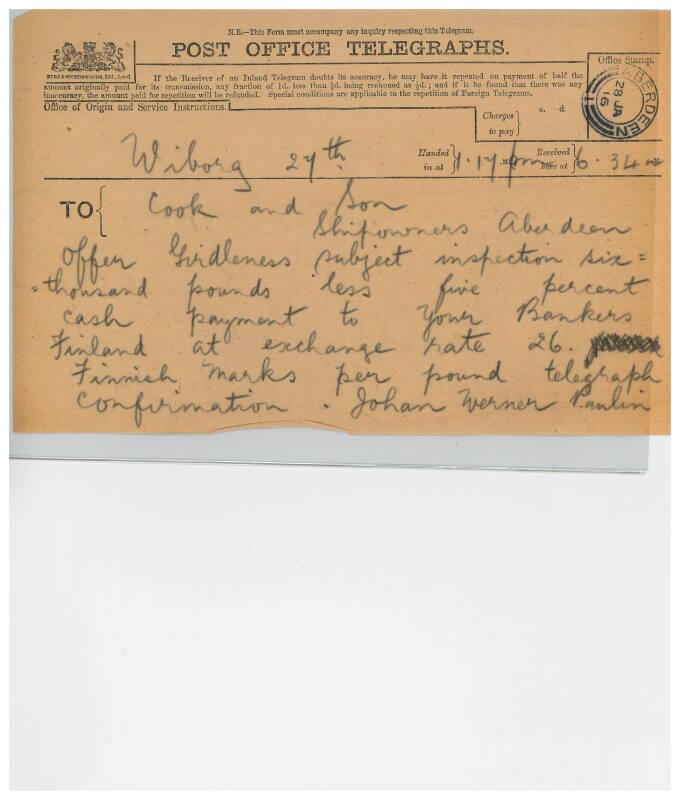 N.B.—This Form must accompany any inquiry respecting this Telegram.
POST OFFICE TELEGRAPHS.
If the Receiver of an Inland Telegram doubts its accuracy, he may have it repeated on payment of half the
amount originally paid for its transmission, any fraction of 1d. less than ½d. being reckoned as ½d.; and if it be found that there was any
inaccuracy, the amount paid for repetition will be refunded. Special conditions are applicable to the repetition of Foreign Telegrams.
Office Stamp.
ABERDEEN
28 JA
16
Office of Origin and Service Instructions.
Charges to pay
s. d.
Wiborg 27th
Handed in at
1.17 pm
Received here at
6.34
TO
Cook and Son
Shipowners Aberdeen
Offer Girdleness subject inspection six=
=thousand pounds less five percent
cash payment to your Bankers
Finland at exchange rate 26.
Finnish marks per pound telegraph
confirmation . Johan Werner Paulin